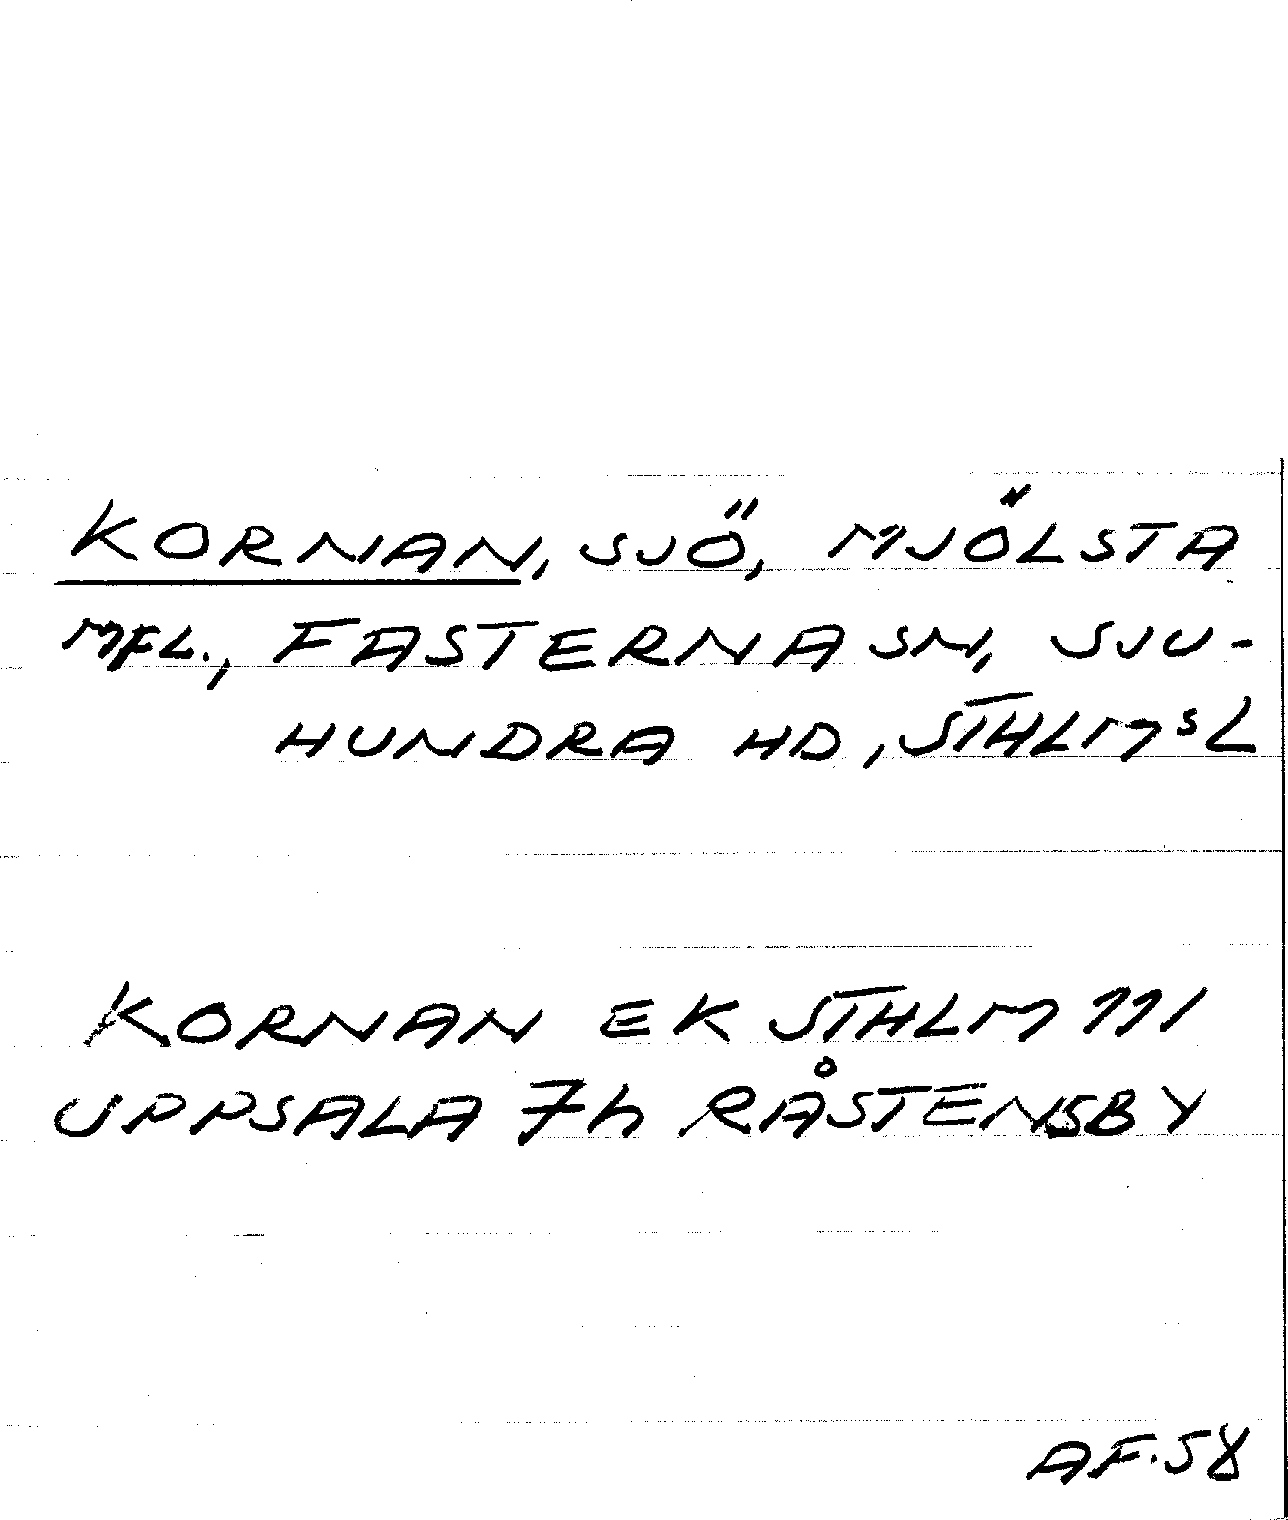 KORNAN, SJÖ, MJÖLSTA
MFL., FASTERNA SN, SJU-
HUNDRA HD, STHLMS L
KORNAN EK STHLM 111
UPPSALA 7h RÅSTENSBY
AF. 58